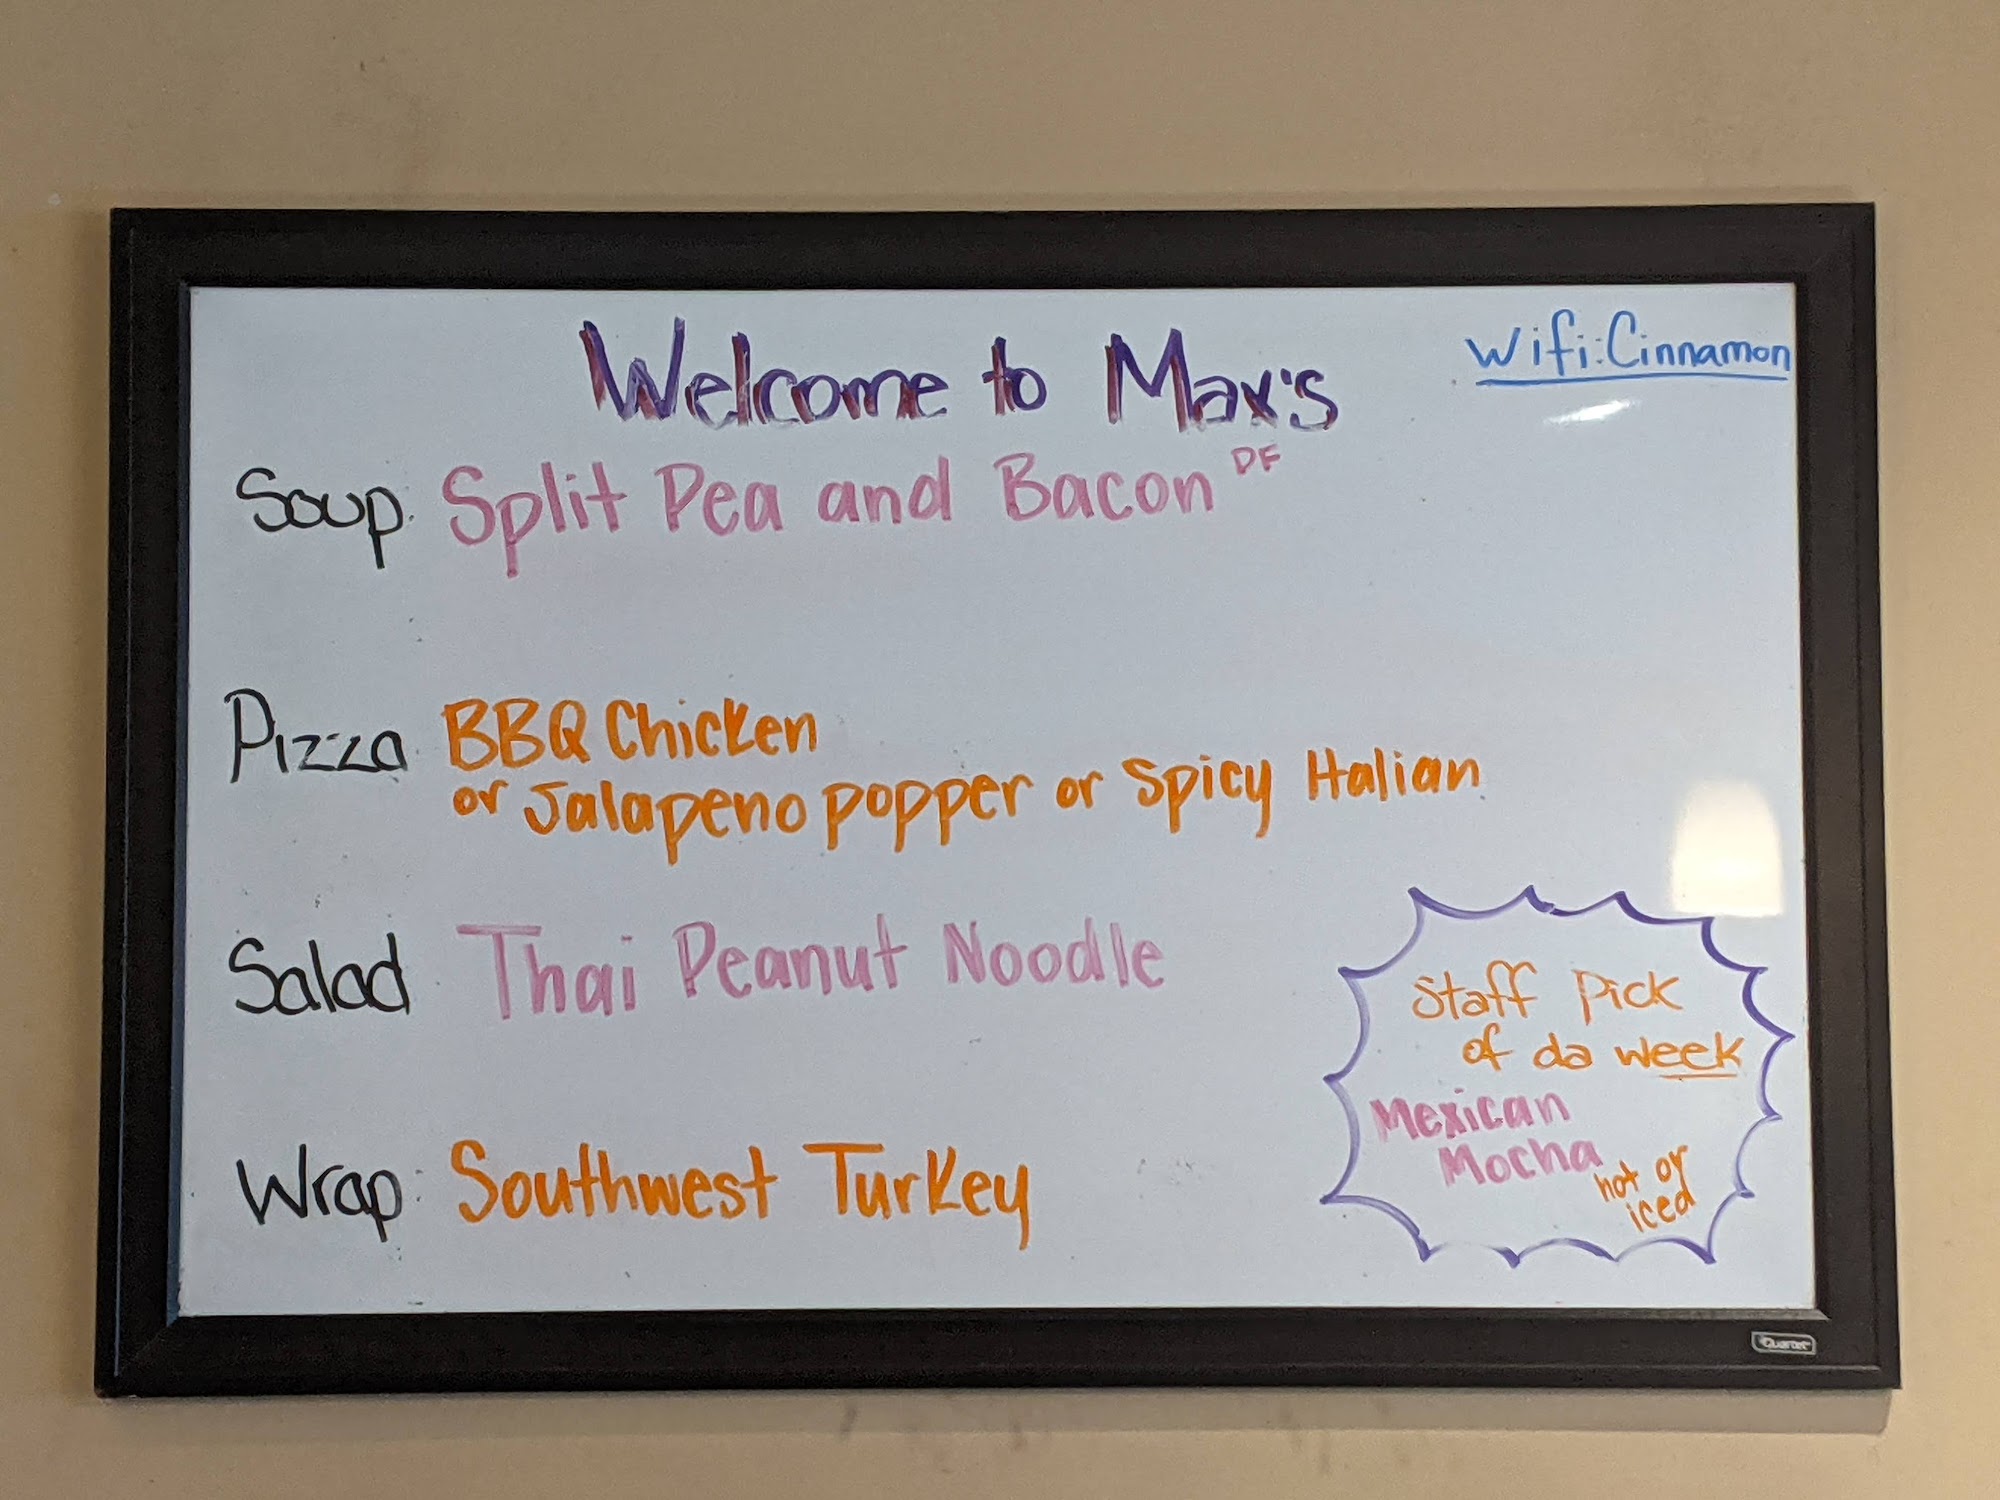 Welcome to Max's
Wifi: Cinnamon
Soup: Split Pea and Bacon DF
Pizza BBQ Chicken
or Jalapeno popper or Spicy Italian
Salad Thai Peanut Noodle
Wrap: Southwest Turkey
Staff Pick
of da week
Mexican
Mocha
hot or
iced
Quartet